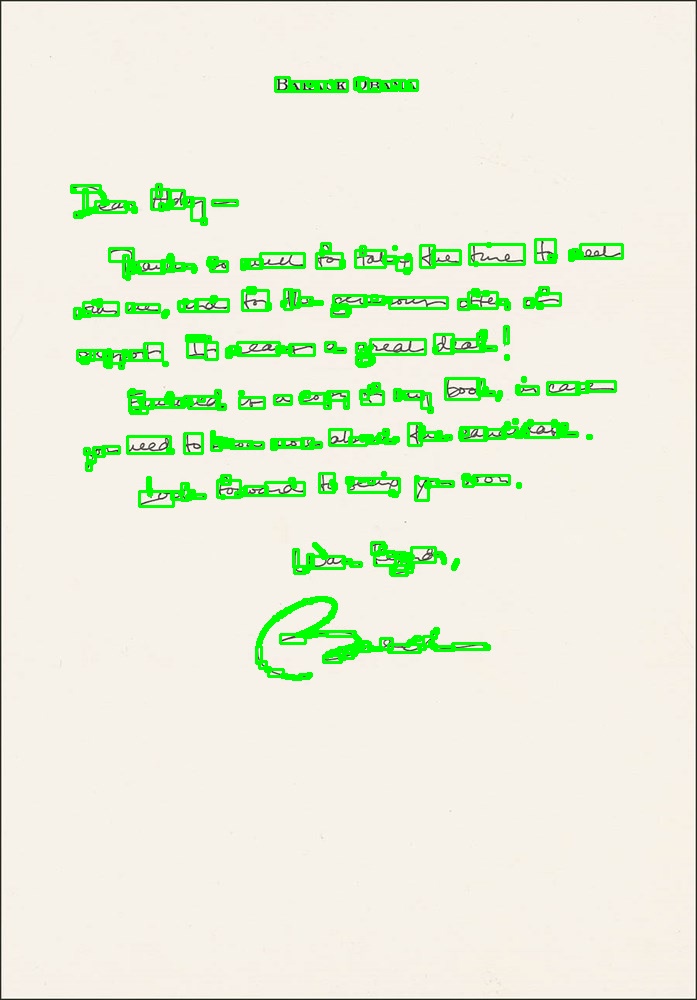 BARACK OBAMA
Dear
Thanks so much for taking the time to meet
with me, and for the generous offer of
support. It means a great deal!
Enclosed is a copy of my book, in case
you need to know more about the candidate.
Look forward to seeing you soon.
Warm Regards,